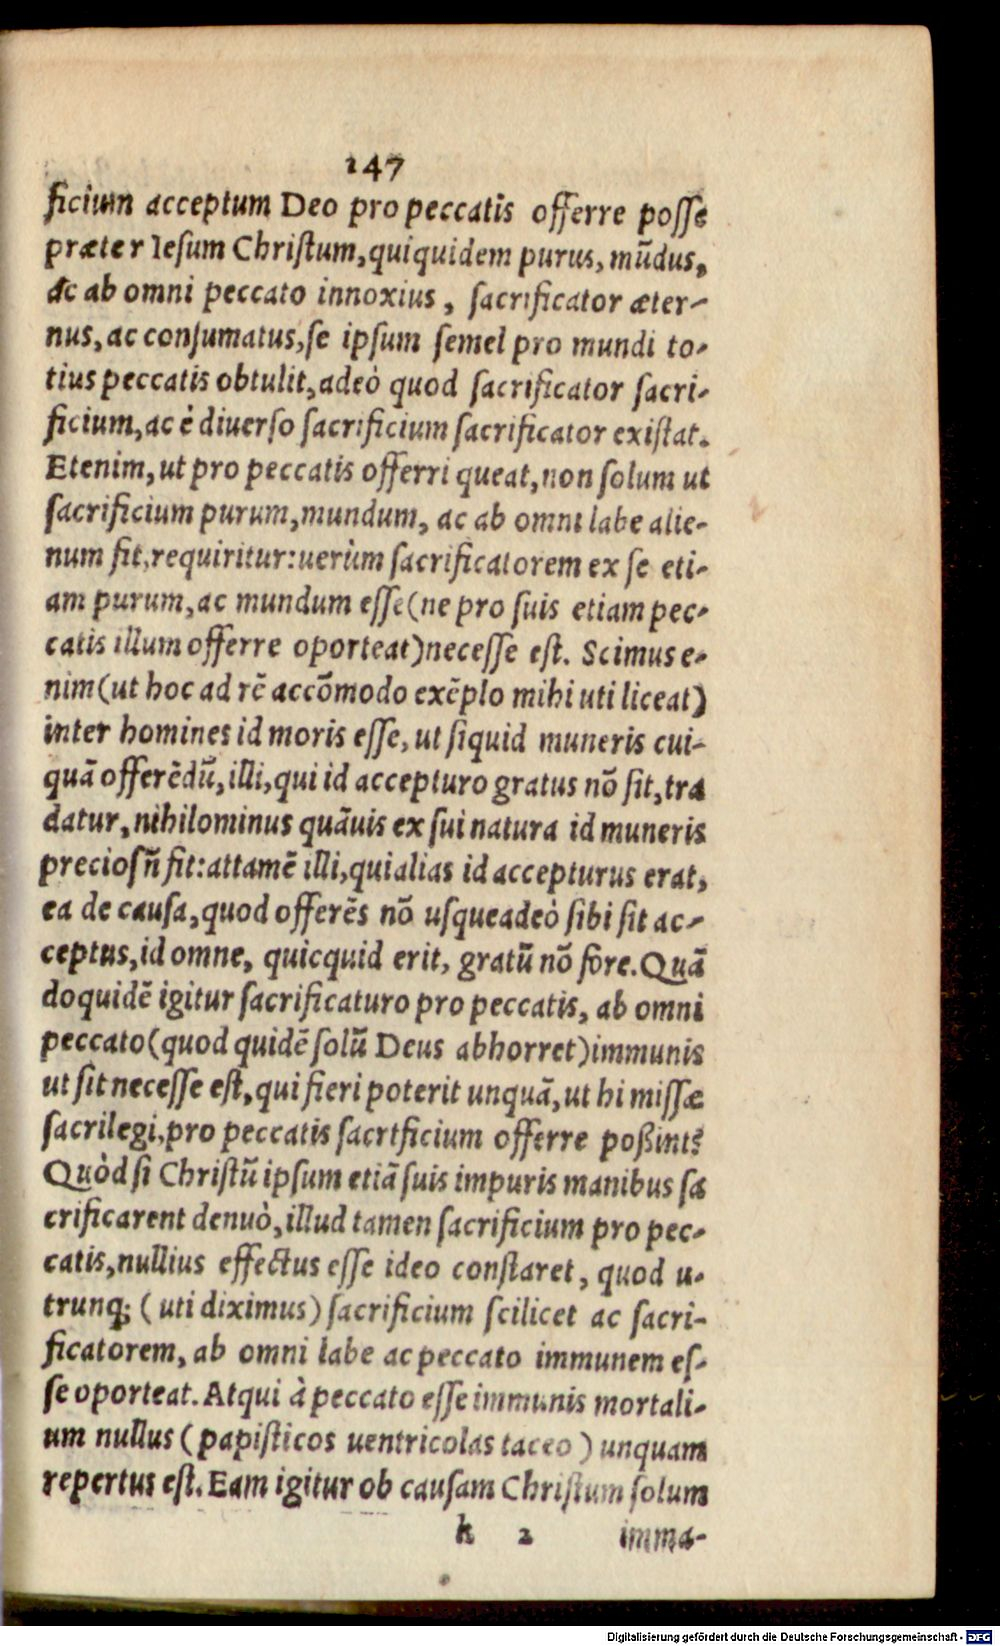 147
ficium acceptum Deo pro peccatis offerre posse
præter Iesum Christum, quiquidem purus, mūdus,
ac ab omni peccato innoxius, sacrificator æter-
nus, ac consumatus, se ipsum semel pro mundi to-
tius peccatis obtulit, adeò quod sacrificator sacri-
ficium, ac è diuerso sacrificium sacrificator existat.
Etenim, ut pro peccatis offerri queat, non solum ut
sacrificium purum, mundum, ac ab omni labe alie-
num sit, requiritur: uerùm sacrificatorem ex se eti-
am purum, ac mundum esse (ne pro suis etiam pec-
catis illum offerre oporteat) necesse est. Scimus e-
nim (ut hoc ad rē accōmodo exēplo mihi uti liceat)
inter homines id moris esse, ut siquid muneris cui-
quā offerēdū, illi, qui id accepturo gratus nō sit, tra
datur, nihilominus quāuis ex sui natura id muneris
preciosū sit: attamē illi, qui alias id accepturus erat,
ea de causa, quod offerēs nō usqueadeò sibi sit ac-
ceptus, id omne, quicquid erit, gratū nō fore. Quā
doquidē igitur sacrificaturo pro peccatis, ab omni
peccato (quod quidē solū Deus abhorret) immunis
ut sit necesse est, qui fieri poterit unquā, ut hi missæ
sacrilegi, pro peccatis sacrtficium offerre poßint?
Quòd si Christū ipsum etiā suis impuris manibus sa
crificarent denuò, illud tamen sacrificium pro pec-
catis, nullius effectus esse ideo constaret, quod u-
trunq; (uti diximus) sacrificium scilicet ac sacri-
ficatorem, ab omni labe ac peccato immunem es-
se oporteat. Atqui à peccato esse immunis mortali-
um nullus (papisticos uentricolas taceo) unquam
repertus est. Eam igitur ob causam Christum solum
k 2 imma-
Digitalisierung gefördert durch die Deutsche Forschungsgemeinschaft - DFG